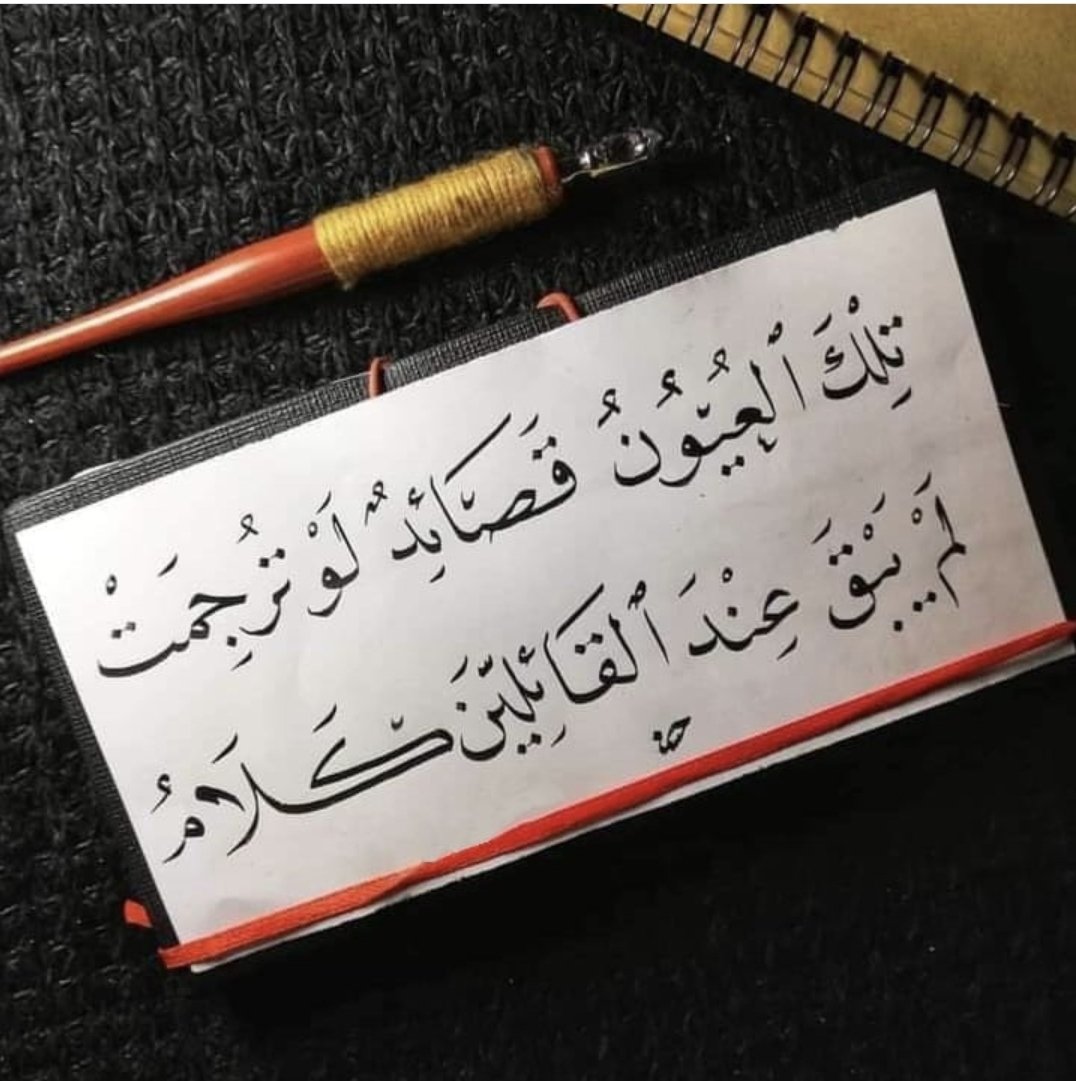 تِلْكَ ٱلْعُيُونُ قَصَائِدٌ لَوْ تُرْجِمَتْ
لَمْ يَبْقَ عِنْدَ ٱلْقَائِلِيْنَ كَلَامُ